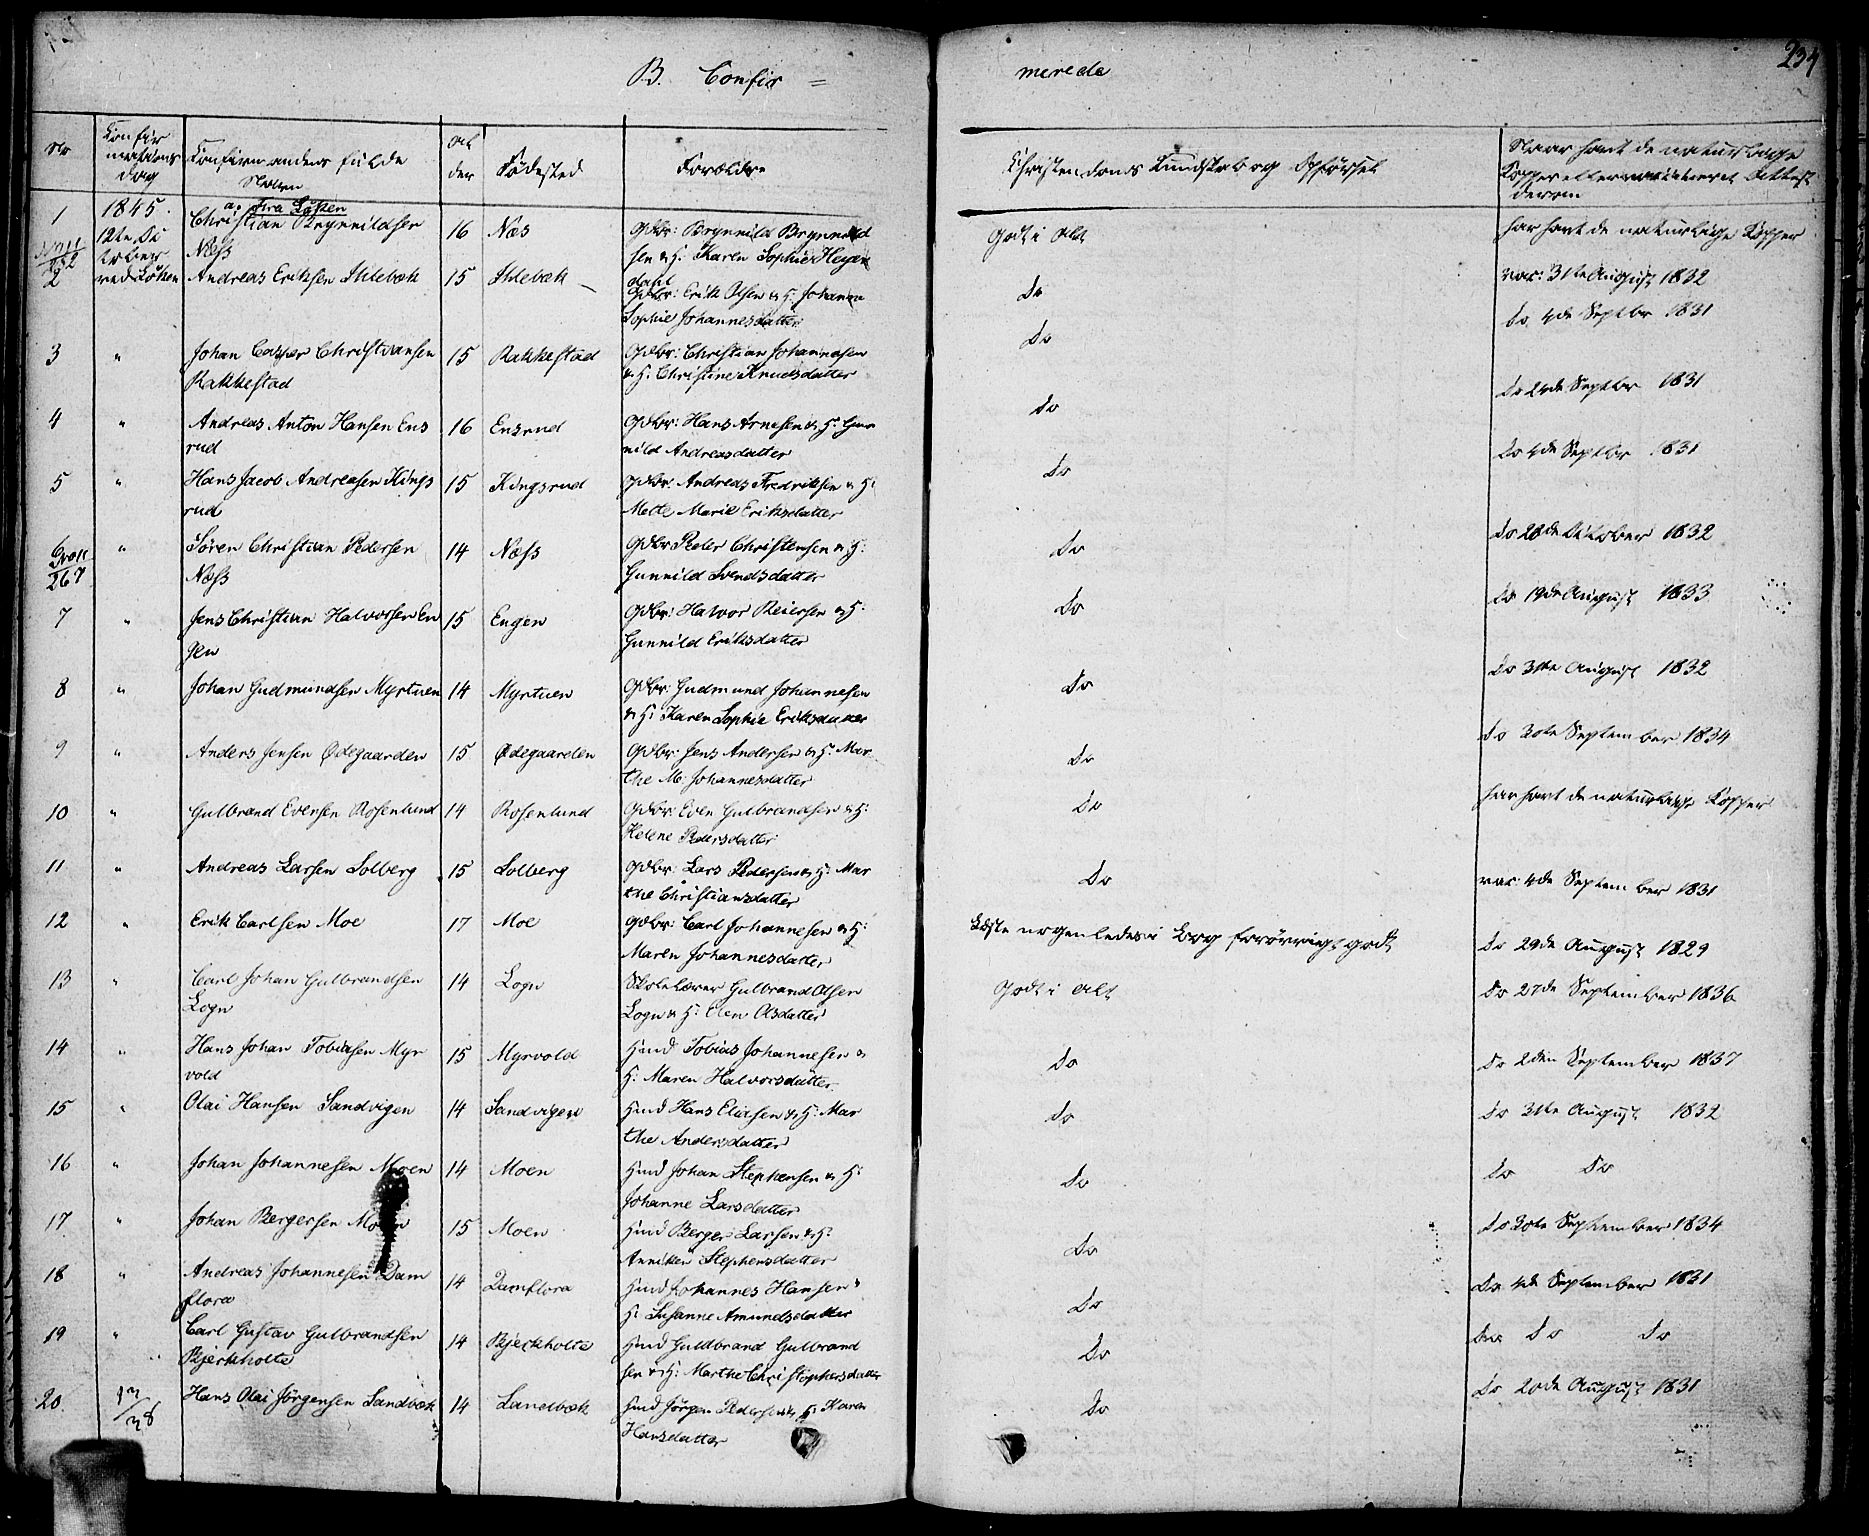 234
B. Confir =
merede
No
Confir
mations
dag
Confirmandens fulde
Navn
Al
der
Fødested
Forældre
Christendoms Kundskab og Opførsel
Naar havt de naturlige
Kopper eller vaccineret Attest
derom
1845.
a. fra Løken
1
12te Oc
tober
ved Løken
Christian Brynnildsen
Næss
16
Næs
Gdbr: Brynnild Brynnild
sen & H: Karen Sophie Heyer
dahl
Godt i Alt
har havt de naturlige Kopper
2
Andreas Eriksen Ihlebæk
15
Ihlebæk
Gdbr: Erik Olsen & H: Johanne
Sophie Johannesdatter
Do
vac: 31te August 1832
3
"
Johan Casper Christiansen
Rakkestad
15
Rakkestad
Gdbr: Christian Johannesen
& H: Christine Knudsdatter
Do
Do 4de Septbr 1831
4
"
Andreas Anton Hansen Ens
rud
16
Ensrud
Gdbr: Hans Arnesen & H: Gun
nild Andreasdatter
Do
Do 4de Septbr 1831
5
"
Hans Jacob Andreasen Kings
rud
15
Kingsrud
Gdbr: Andreas Fredriksen & H:
Mette Marie Eriksdatter
Do
Do 4de Septbr 1831
6
267
"
Søren Christian Pedersen
Næss
14
Næss
Gdbr Peder Christensen & H:
Gunnild Svendsdatter
Do
Do 28de October 1832
7
"
Jens Christian Halvorsen En
gen
15
Engen
Gdbr: Halvor Reiersen & H:
Gunnild Eriksdatter
Do
Do 19de August 1833
8
"
Johan Gudmundsen Myrtuen
14
Myrtuen
Gdbr: Gudmund Johannesen
& H: Karen Sophie Eriksdatter
Do
Do 31te August 1832
9
"
Anders Jensen Ødegaarden
15
Ødegaarden
Gdbr: Jens Andersen & H: Mar
the M: Johannesdatter
Do
Do 30te September 1834
10
"
Gulbrand Evensen Rosenlund
14
Rosenlund
Gdbr: Even Gulbrandsen & H:
Helene Pedersdatter
Do
har havt de naturlige Kopper
11
"
Andreas Larsen Solberg
15
Solberg
Gdbr: Lars Pedersen & H: Mar
the Christiansdatter
Do
vac: 4de September 1831
12
"
Erik Carlsen Moe
17
Moe
Gdbr: Carl Johannesen & H:
Maren Johannesdatter
Læste nogenledes i Bog forøvrigt godt
Do 29de August 1829
13
"
Carl Johan Gulbrandsen
Logn
14
Logn
Skolelærer Gulbrand Olsen
Logn & H: Elen Olsdatter
Godt i Alt
Do 27de September 1836
14
"
Hans Johan Tobiasen Myr
vold
15
Myrvold
Hmd Tobias Johannesen &
H: Maren Halvorsdatter
Do
Do 2den September 1837
15
"
Olai Hansen Sandvigen
14
Sandvigen
Hmd Hans Eliasen & H: Mar
the Andersdatter
Do
Do 31te August 1832
16
"
Johan Johannesen Moen
14
Moen
Hmd Johan Stephensen & H:
Johanne Larsdatter
Do
Do Do
17
"
Johan Bergersen Moen
15
Moen
Hmd Berger Larsen & H:
Anniken Stephensdatter
Do
Do 30te September 1834
18
"
Andreas Johannesen Dam
flora
14
Damflora
Hmd Johannes Hansen &
H: Susanne Amundsdatter
Do
Do 4de September 1831
19
"
Carl Gustav Gulbrandsen
Bjerkholte
14
Bjerkholte
Hmd Guldbrand Gulbrand
sen & H: Marthe Christophersdatter
Do
Do Do Do
20.
Hans Olai Jørgensen Sandbæk
14
Sandbæk
Hmd Jørgen Pedersen & H: Karen
Hansdatter
Do
Do 20de August 1831